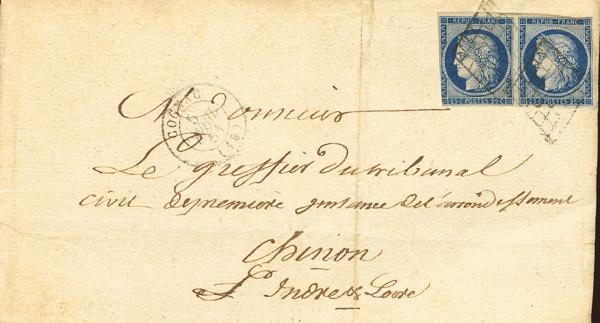 REPUB. FRANC. REPUB. FRANC.
25 C. POSTES 25 C. 25 C. POSTES 25 C.
COGNAC
5
(15)
Monsieur
Le greffier du tribunal
civil de première instance de l'arrondissement
Chinon
Indre & Loire